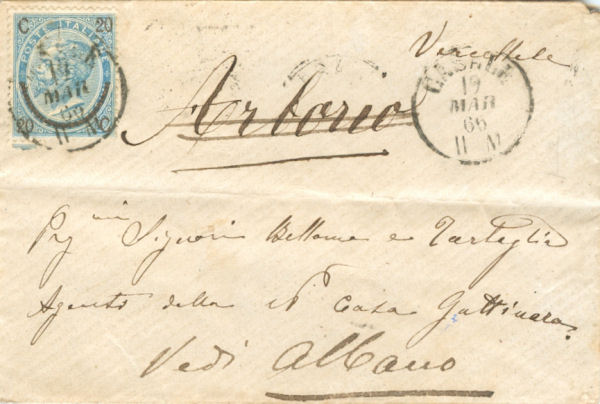 C 20
POSTE ITALI
20
19
MAR
66
11 M
19
MAR
66
11 M
Arborio
Preg.mi Signori Bellame e Tartaglia
Agenti della Casa Gattinara
Vedi Albano